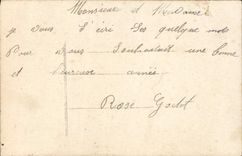 Monsieur et Madame
je vous s'ecri ses quelque mots
Pour vous Souhaitait une bonne
et heureuse année
Rose Godot